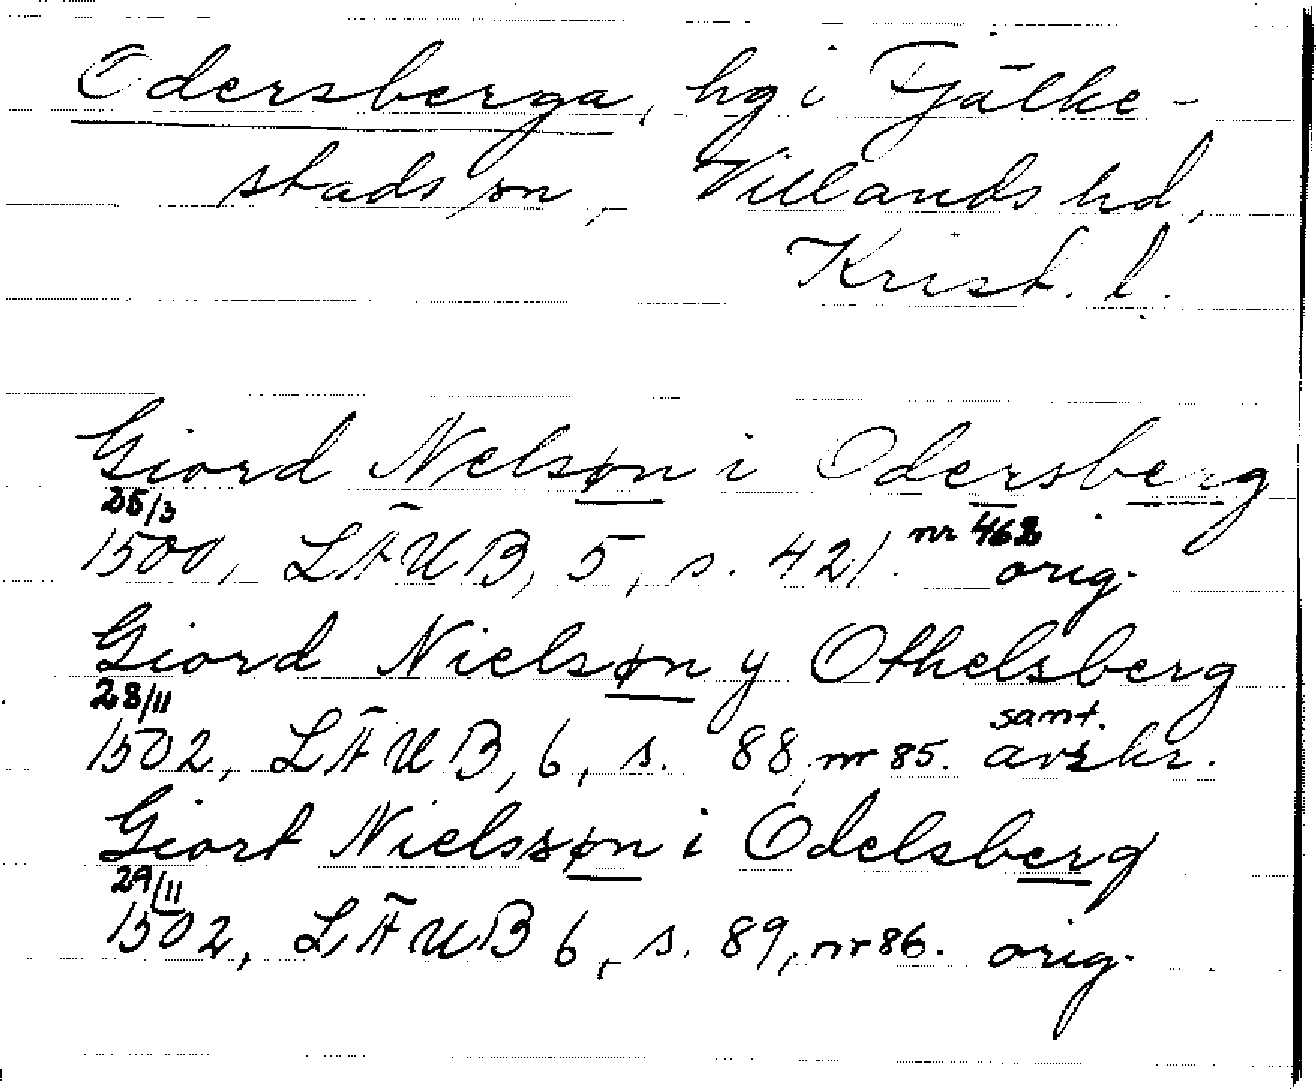 Odersberga, hg i Fjälke-
stads sn, Villands hd,
Krist. l.
Giord Nelsøn i Odersberg
25/3 nr 462
1500, LÄUB, 5, s. 421. orig.
Giord Nielsøn y Othelsberg
28/11 samt.
1502, LÄUB, 6, s. 88, nr 85. avskr.
Giort Nielssøn i Odelsberg
29/11
1502, LÄUB 6, s. 89, nr 86. orig.